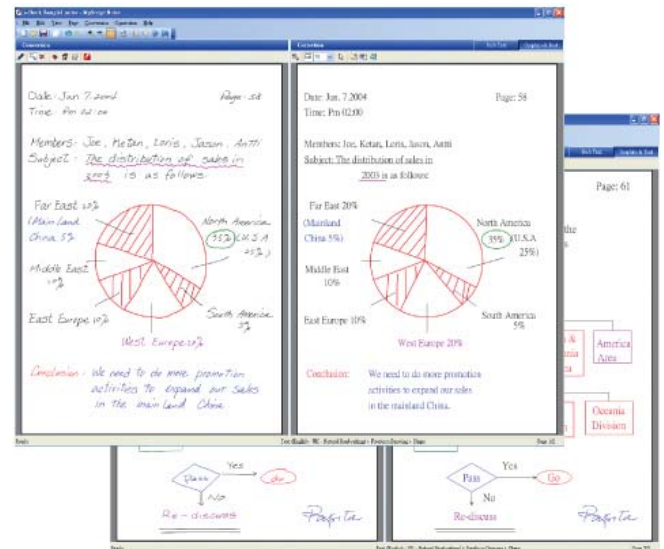 File Edit View Page Conversion Operation Help
Conversion
Date: Jan 7. 2004 Page: 58
Time: Pm 02:00
Members: Joe, Ketan, Loris, Jason, Antti
Subject: The distribution of sales in
2003 is as follows:
Far East 20%
(Mainland
China 5%
North America
35% (U.S.A
25%)
Middle East
10%
South America
5%
East Europe 10%
West Europe 20%
Conclusion: We need to do more promotion
activities to expand our sales
in the mainland China.
Correction
Date: Jan. 7.2004 Page: 58
Time: Pm 02:00
Members: Joe, Ketan, Loris, Jason, Antti
Subject: The distribution of sales in
2003 is as follows:
Far East 20%
(Mainland
China 5%)
North America
35% (U.S.A
25%)
Middle East
10%
South America
5%
East Europe 10%
West Europe 20%
Conclusion: We need to do more promotion
activities to expand our sales
in the mainland China.
Page: 61
the
&
America
Area
Oceania
Division
Pass Yes Go
No
Re-discuss
Pass Yes Go
No
Re-discuss